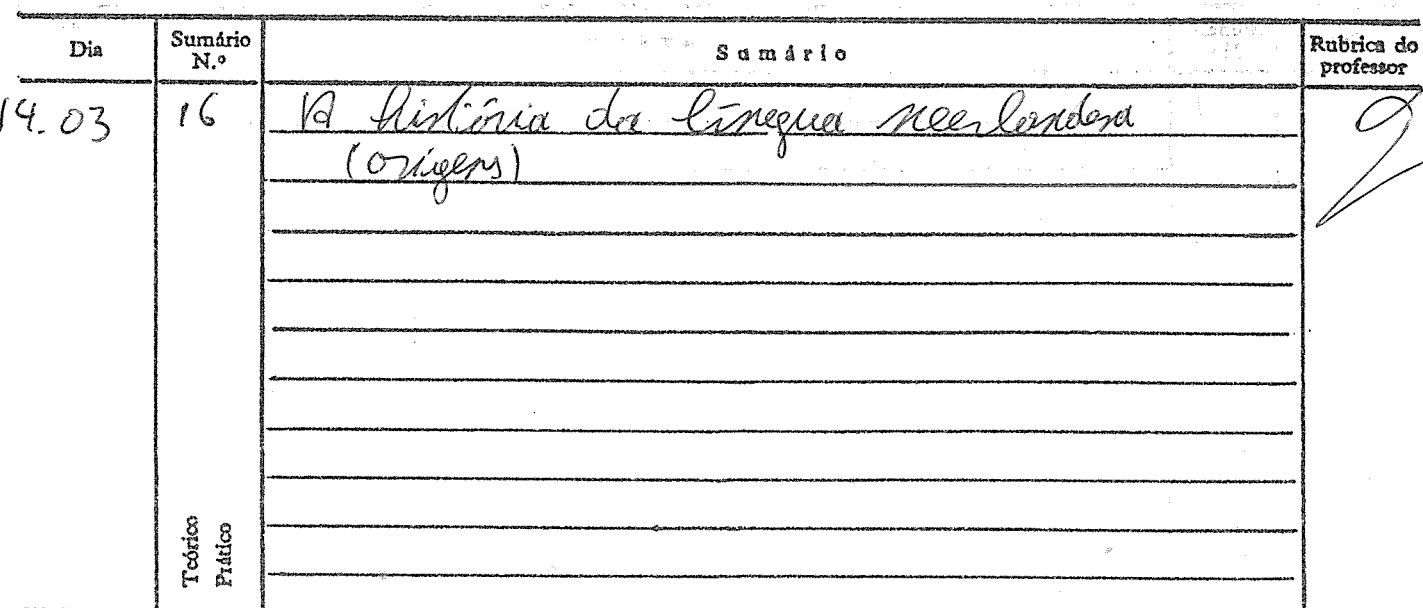 Dia Sumário N.º Sumário Rubrica do professor
14.03 16 A história da língua neerlandesa
(origens)
Teórico
Prático